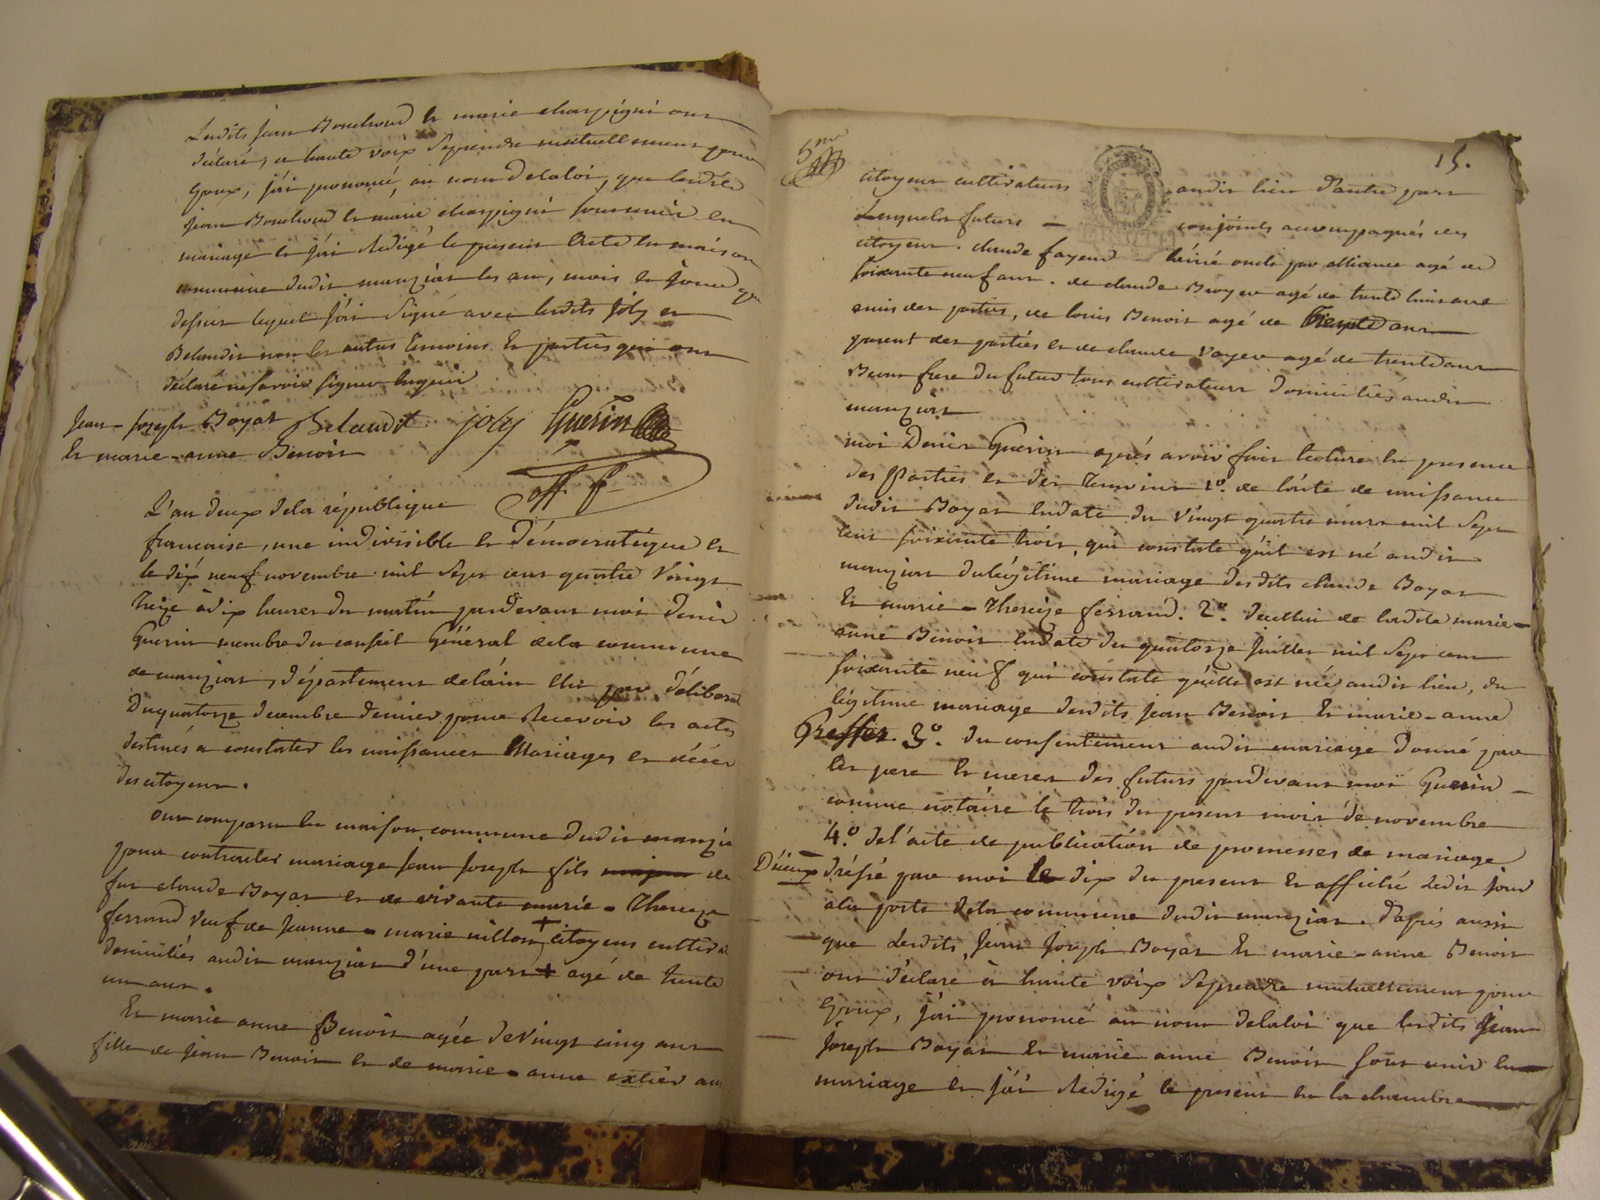 Lesdits jean Bouchoud et marie charpigni ont
déclaré, a haute voix Seprendre mutuellement pour
Epoux, j'ai prononcé, au nom delaloi, que lesdits
jean Bouchoud et marie charpigni sont unis en
mariage et j'ai Redigé le present Acte en maison
commune dudit manziat les an, mois et jour que
dessus lequel j'ai Signé avec lesdits joly et
Belaudit non les autres temoins et parties qui ont
déclaré nesavoir signer
Jean-joseph Boyat Belaudit joly Guerin
Et marie-anne Benoit off p
L'an deux dela république
francaise, une indivisible et démocratique et
le dix neuf novembre mil Sept cent quatre vingt
treize à dix heures du matin pardevant moi denis
Guerin membre du conseil Général dela commune
de manziat, département delain elu par délibera
Duquatorze decembre dernier pour Recevoir les actes
destinés a constater les naissances Mariages et décés
des citoyens.
ont comparu en maison commune dudit manzia
pour contracter mariage jean joseph fils de
feu claude Boyat et de vivante marie-Thereze
ferrand veuf de jeanne-marie nillon + citoyens cultiva
domiciliés audit manziat d'une part + agé de trente
un ans.
Et marie anne Benoit agée devingt cinq ans
fille de jean Benoit et de marie-anne
15.
citoyens cultivateurs audit lieu d'autre part
Lesquels futurs conjoints accompagnés des
citoyens claude fayend oncle par alliance agé de
soixante neuf ans. de claude Broyer agé de trente huit ans
amis des parties, de louis Benoit agé de Trente ans
parent des parties et de claude voyer agé de trente ans
Beau frere du futur tous cultivateurs domiciliés audit
manziat
moi Denis Guerin aprés avoir fait lecture en presence
des Parties et des temoins 1º. de l'acte de naissance
dudit Boyat endate du vingt quatre mars mil Sept
cent soixante trois, qui constate qu'il est né audit
manziat dulégitime mariage desdits claude Boyat
Et marie-Thereze ferrand. 2º. decellui de ladite marie-
anne Benoit endate du quatorze juillet mil Sept cent
soixante neuf qui constate qu'elle est née audit lieu, du
légitime mariage desdits jean Benoit et marie-anne
Greffet. 3º. du consentement audit mariage donné par
les pere et meres des futurs pardevant moi Guerin
comme notaire le trois du present mois de novembre
4.º del'acte de publication de promesses de mariage
dréssé par moi le dix du present et affiché ledit jour
ala porte dela commune dudit manziat. d'aprés aussi
que Lesdits, jean joseph Boyat et marie-anne Benoit
ont déclaré à haute voix Seprendre mutuellement pour
Epoux, j'ai prononcé au nom delaloi que lesdits jean
joseph Boyat et marie anne Benoit sont unis en
mariage et j'ai Redigé le present en la chambre